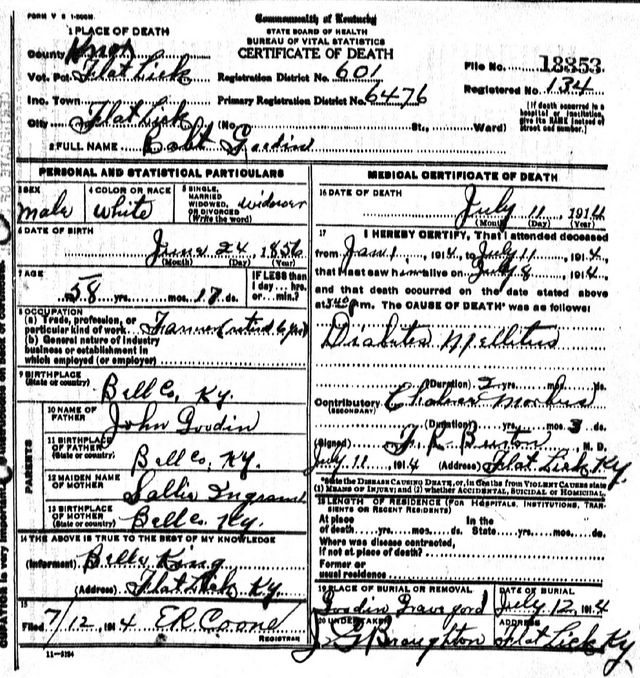 FORM V S 1-200M
Commonwealth of Kentucky
STATE BOARD OF HEALTH
BUREAU OF VITAL STATISTICS
CERTIFICATE OF DEATH
1 PLACE OF DEATH
County Knox
Vot. Pct. Flat Lick
Registration District No. 601
File No. 18353
Inc. Town
Primary Registration District No. 6476
Registered No. 134
City Flat Lick (No. St., Ward)
(If death occurred in a hospital or institution, give its NAME instead of street and number.)
2 FULL NAME Goodin
PERSONAL AND STATISTICAL PARTICULARS
3 SEX male
4 COLOR OR RACE White
5 SINGLE, MARRIED WIDOWED, OR DIVORCED (Write the word) widower
6 DATE OF BIRTH
June 24, 1856
(Month) (Day) (Year)
7 AGE
58 yrs. mos. 17 ds.
IF LESS than 1 day ... hrs. or ... min.?
8 OCCUPATION
(a) Trade, profession, or particular kind of work Farmer
(b) General nature of industry business or establishment in which employed (or employer)
9 BIRTHPLACE (State or country) Bell Co. Ky.
PARENTS
10 NAME OF FATHER John Goodin
11 BIRTHPLACE OF FATHER (State or country) Bell Co. Ky.
12 MAIDEN NAME OF MOTHER Sallie Ingram
13 BIRTHPLACE OF MOTHER (State or country) Bell Co. Ky.
14 THE ABOVE IS TRUE TO THE BEST OF MY KNOWLEDGE
(Informant) King
(Address) Flat Lick Ky.
15
Filed 7/12, 1914 E R Coone
REGISTRAR
11-3184
MEDICAL CERTIFICATE OF DEATH
16 DATE OF DEATH
July 11, 1914
(Month) (Day) (Year)
17 I HEREBY CERTIFY, That I attended deceased
from Jan 1, 1914, to July 11, 1914,
that I last saw him alive on July 8, 1914,
and that death occurred on the date stated above
at 3:40 P.m. The CAUSE OF DEATH* was as follows:
Diabetes Mellitus
(Duration) 2 yrs. mos. ds.
Contributory Cholera Morbus
(SECONDARY)
(Duration) yrs. mos. 3 ds.
(Signed) Burton M. D.
July 11, 1914 (Address) Flat Lick Ky.
*State the DISEASE CAUSING DEATH, or, in deaths from VIOLENT CAUSES state (1) MEANS OF INJURY; and (2) whether ACCIDENTAL, SUICIDAL or HOMICIDAL.
18 LENGTH OF RESIDENCE (FOR HOSPITALS, INSTITUTIONS, TRANSIENTS OR RECENT RESIDENTS)
At place of death yrs. mos. ds. In the State yrs. mos. ds.
Where was disease contracted, if not at place of death?
Former or usual residence
19 PLACE OF BURIAL OR REMOVAL Goodin Graveyard
DATE OF BURIAL July 12, 1914
20 UNDERTAKER J G Broughton
ADDRESS Flat Lick Ky.